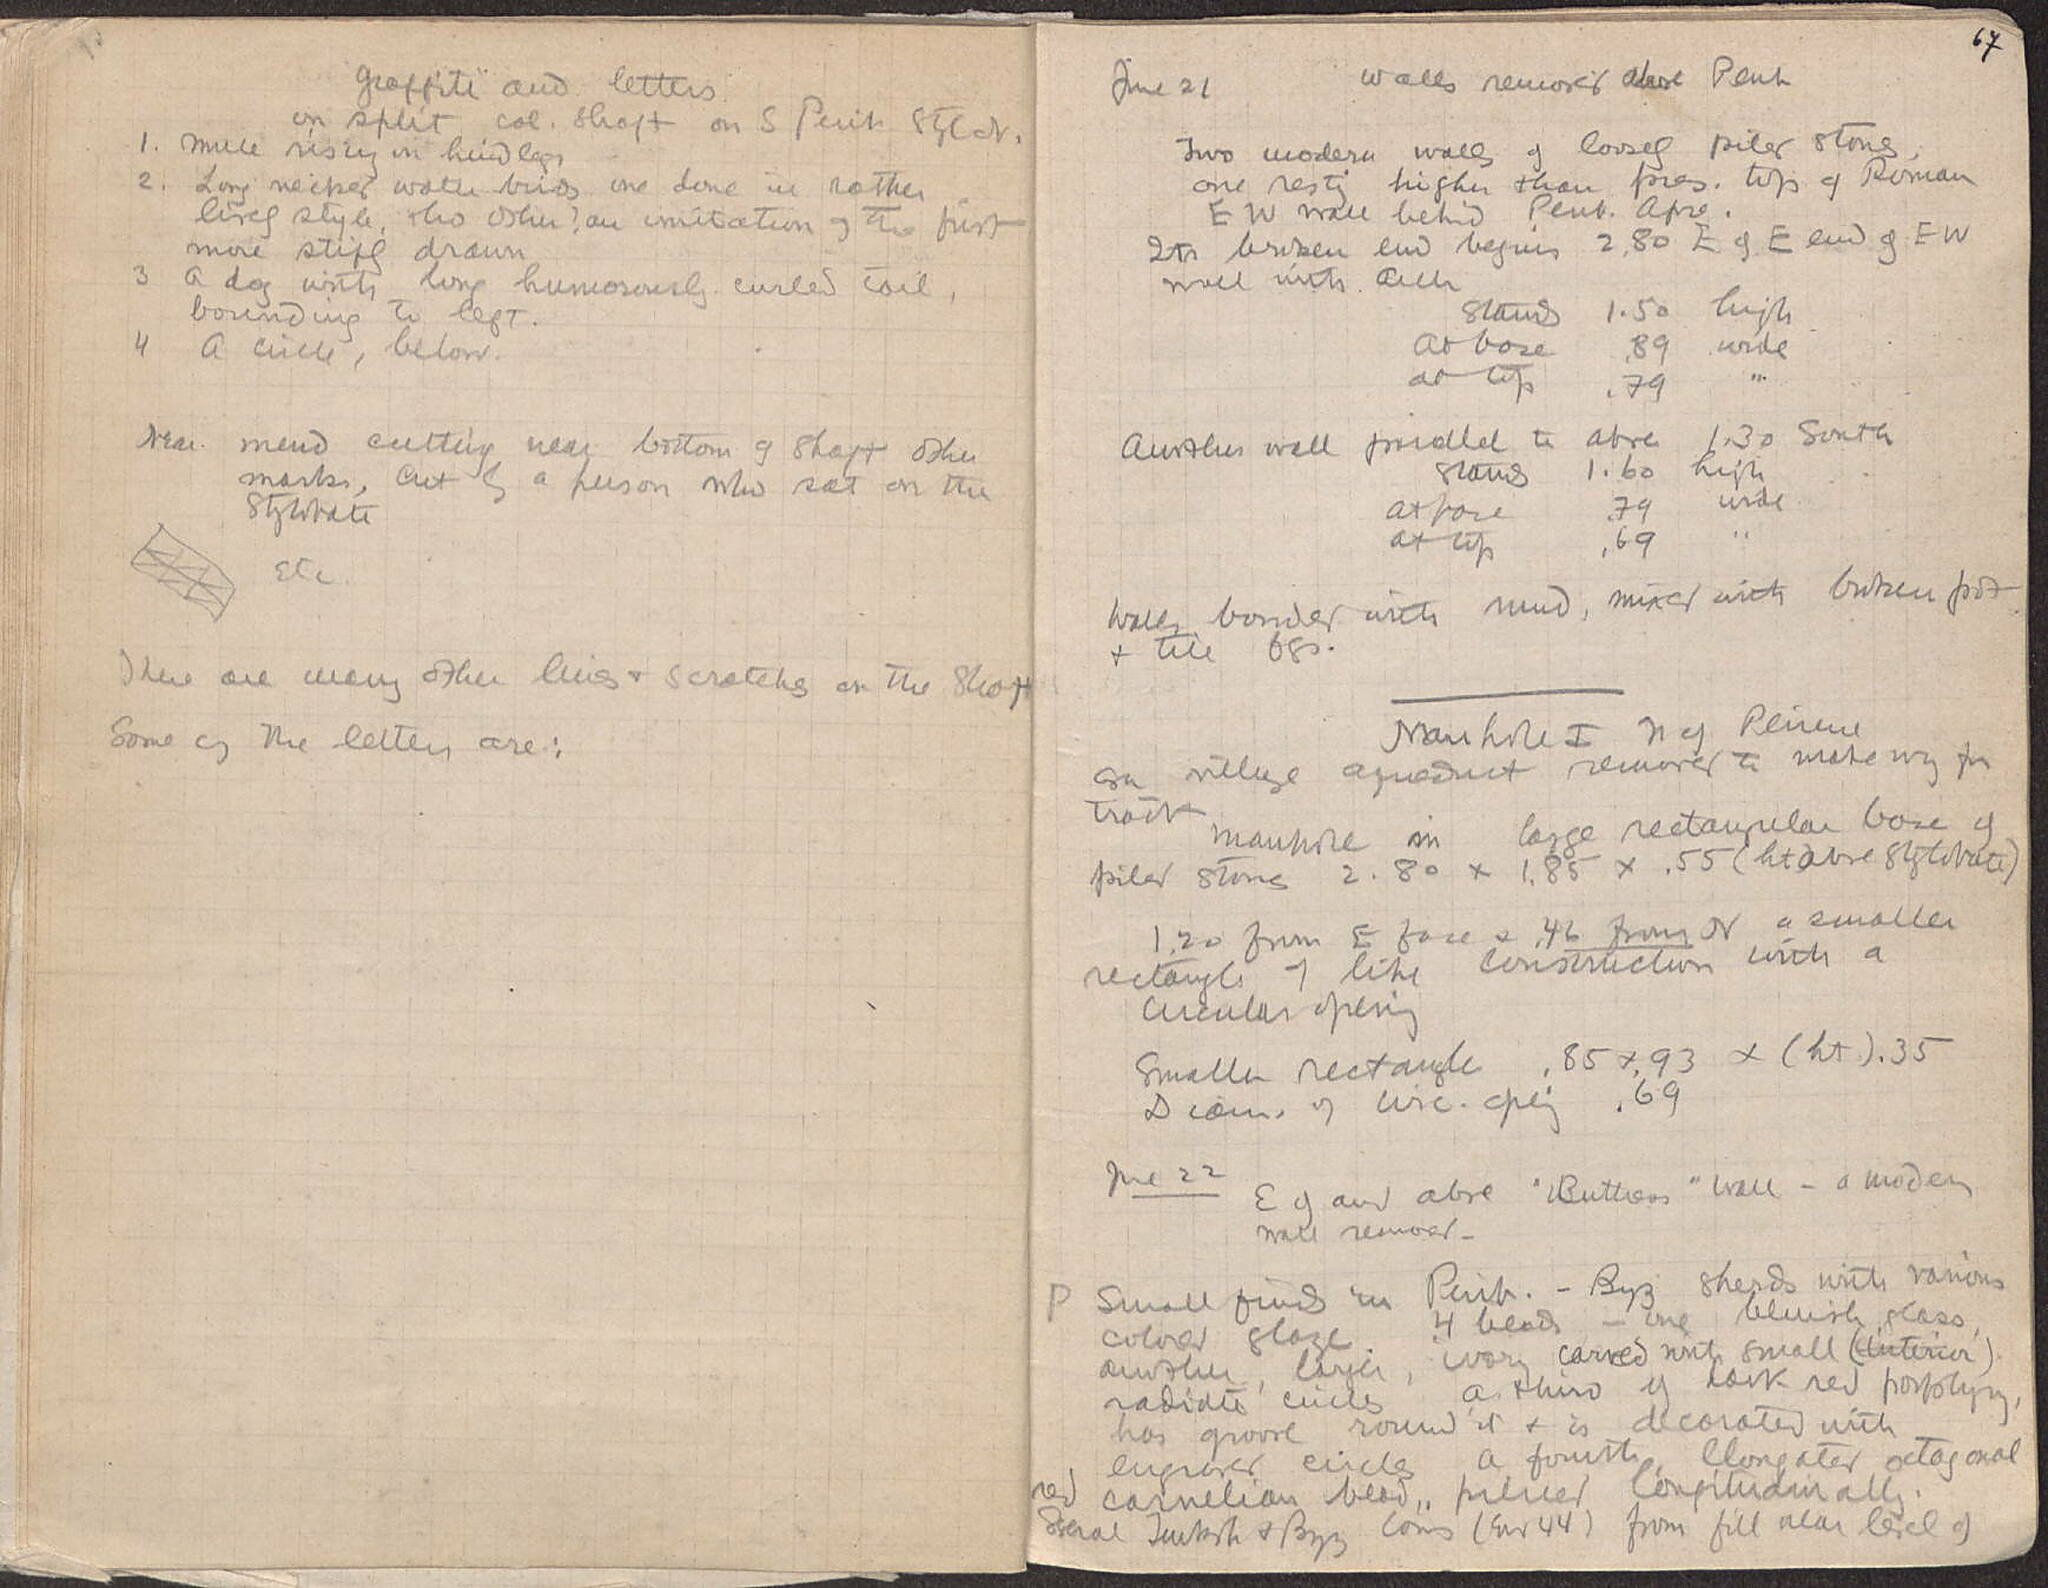 Graffiti and letters
on split col. shaft on S Perib Stylob.
1. Mule rising on hindlegs
2. Long necked water birds one done in rather
lively style, the other? an imitation of the first
more stiffly drawn
3 A dog with long humorously curled tail,
bounding to left.
4 A circle, below.
Near mend cutting near bottom of shaft other
marks, cut by a person who sat on the
Stylobate
Etc.
There are many other lines + scratches on the shaft
Some of the letters are:
67
June 21 Walls removed above Perib
Two modern walls of loosely piled stones,
one resting higher than pres. top of Roman
E W wall behind Perib. Apse.
Its broken end begins 2.80 E of E end of E W
wall with
Stands 1.50 high
At base .89 wide
at top .79 "
Another wall parallel to above 1.30 South
Stands 1.60 high
at base .79 wide
at top .69 "
Walls bonded with mud, mixed with broken pot
+ tile
Manhole I N of Peirene
on village aqueduct removed to make way for
track
Manhole in large rectangular base of
piled stones 2.80 x 1.85 x .55 (ht above stylobate)
1.20 from E face & .46 from N a smaller
rectangle of like construction with a
circular opening
Smaller rectangle .85 x .93 x (ht) .35
Diam. of circ. opeg .69
June 22
E of and above "Buttress" wall - a modern
wall removed -
P Small finds in Perib. - Byz sherds with various
colored glaze. 4 beads - one bluish glass,
another, larger, ivory carved with small (interior)
radiate circles a third of dark red porphyry,
has groove round it + is decorated with
engraved circles a fourth, elongated octagonal
red carnelian bead, pierced longitudinally.
Several Turkish & Byz coins (Env 44) from fill near level of